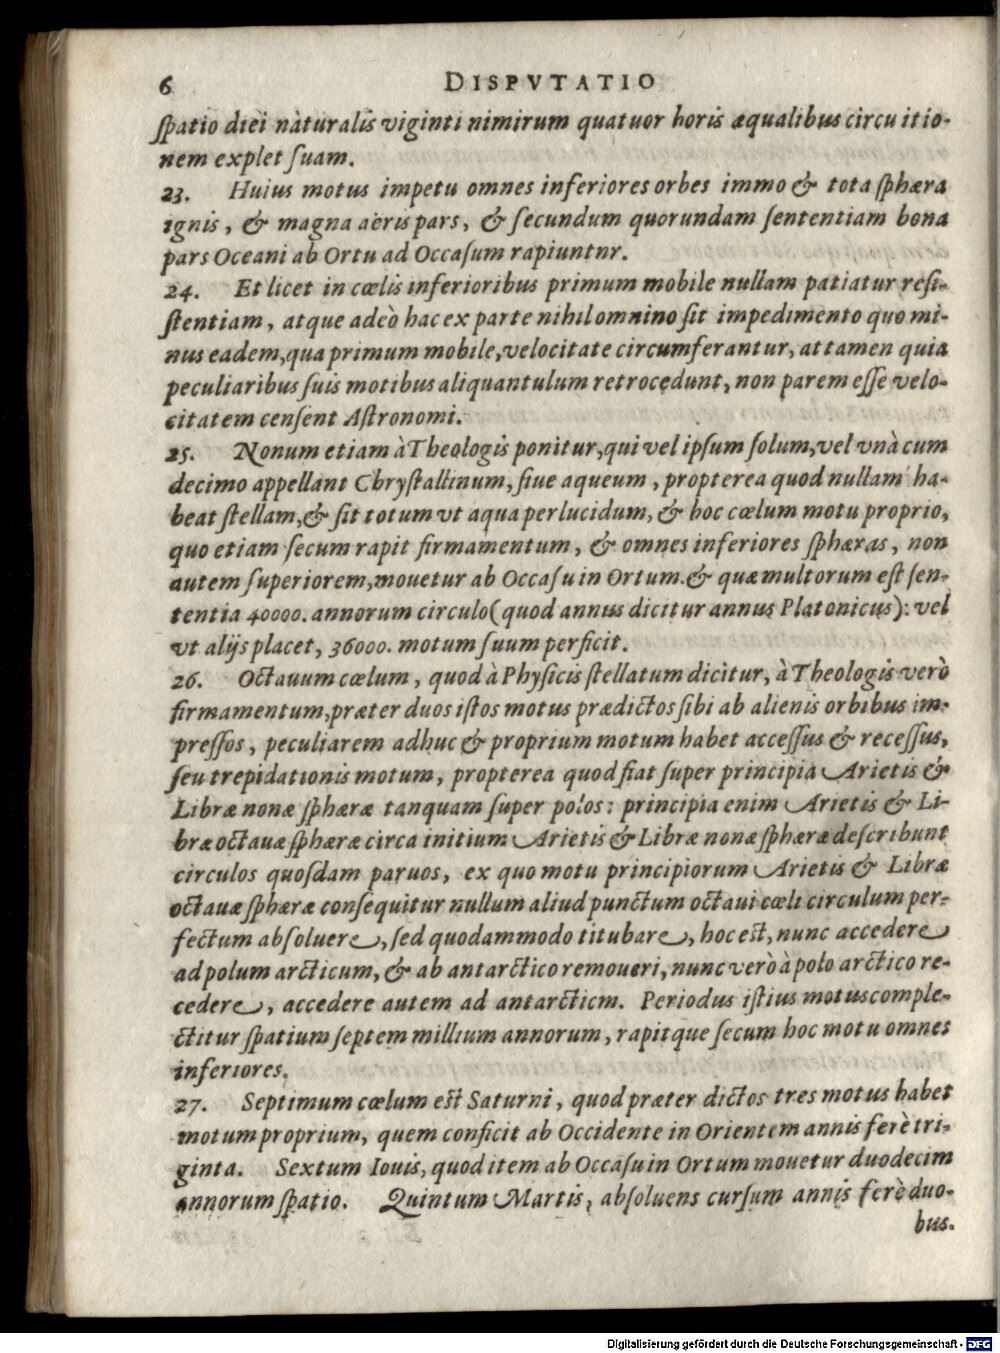 6 DISPVTATIO
ſpatio diei nàturalis viginti nimirum quatuor horis æqualibus circuitio-
nem explet ſuam.
23. Huius motus impetu omnes inferiores orbes immo & tota ſphæra
ignis, & magna aëris pars, & ſecundum quorundam ſententiam bona
pars Oceani ab Ortu ad Occaſum rapiuntnr.
24. Et licet in cœlis inferioribus primum mobile nullam patiatur reſi-
ſtentiam, atque adeò hac ex parte nihil omnino ſit impedimento quo mi-
nus eadem, qua primum mobile, velocitate circumferantur, attamen quia
peculiaribus ſuis motibus aliquantulum retrocedunt, non parem eſſe velo-
citatem cenſent Aſtronomi.
25. Nonum etiam à Theologis ponitur, qui vel ipſum ſolum, vel vnà cum
decimo appellant Chryſtallinum, ſiue aqueum, propterea quod nullam ha-
beat ſtellam, & ſit totum vt aqua perlucidum, & hoc cœlum motu proprio,
quo etiam ſecum rapit firmamentum, & omnes inferiores ſphæras, non
autem ſuperiorem, mouetur ab Occaſu in Ortum. & quæ multorum eſt ſen-
tentia 40000. annorum circulo (quod annus dicitur annus Platonicus): vel
vt alijs placet, 36000. motum ſuum perficit.
26. Octauum cœlum, quod à Phyſicis ſtellatum dicitur, à Theologis verò
firmamentum, præter duos iſtos motus prædictos ſibi ab alienis orbibus im-
preſſos, peculiarem adhuc & proprium motum habet acceſſus & receſſus,
ſeu trepidationis motum, propterea quod fiat ſuper principia Arietis &
Libræ nonæ ſphæræ tanquam ſuper polos: principia enim Arietis & Li-
bræ octauæ ſphæræ circa initium Arietis & Libræ nonæ ſphæræ deſcribunt
circulos quoſdam paruos, ex quo motu principiorum Arietis & Libræ
octauæ ſphæræ conſequitur nullum aliud punctum octaui cœli circulum per-
fectum abſoluere, ſed quodammodo titubare, hoc eſt, nunc accedere
ad polum arcticum, & ab antarctico remoueri, nunc verò à polo arctico re-
cedere, accedere autem ad antarcticm. Periodus iſtius motus comple-
ctitur ſpatium ſeptem millium annorum, rapitque ſecum hoc motu omnes
inferiores.
27. Septimum cœlum eſt Saturni, quod præter dictos tres motus habet
motum proprium, quem conficit ab Occidente in Orientem annis ferè tri-
ginta. Sextum Iouis, quod item ab Occaſu in Ortum mouetur duodecim
annorum ſpatio. Quintum Martis, abſoluens curſum annis ferè duo-
bus.
Digitalisierung gefördert durch die Deutsche Forschungsgemeinschaft - DFG